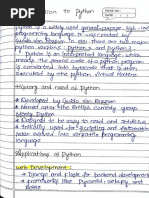 to Python
PAGE NO:
DATE:
Python is a widely used general-purpose, high level
programming language. It was created by
Guido Van Rossum in 1991. There are two major
python versions: Python 2 and Python 3.
→ Python is an interpreted language which
means the source code of a python
program is converted into bytecode that is then
executed by the python virtual Machine.
History and need of Python
→ Developed by Guido Van Rossum
→ Named after the British comedy group
Monty Python
→ Designed to be easy to read and intuitive.
→ Initially used for scripting and automation
later evolved into versatile programming
language.
Applications of Python
Web Development:
→ Django and flask for backend development
→ community like pyramid, web2py, and